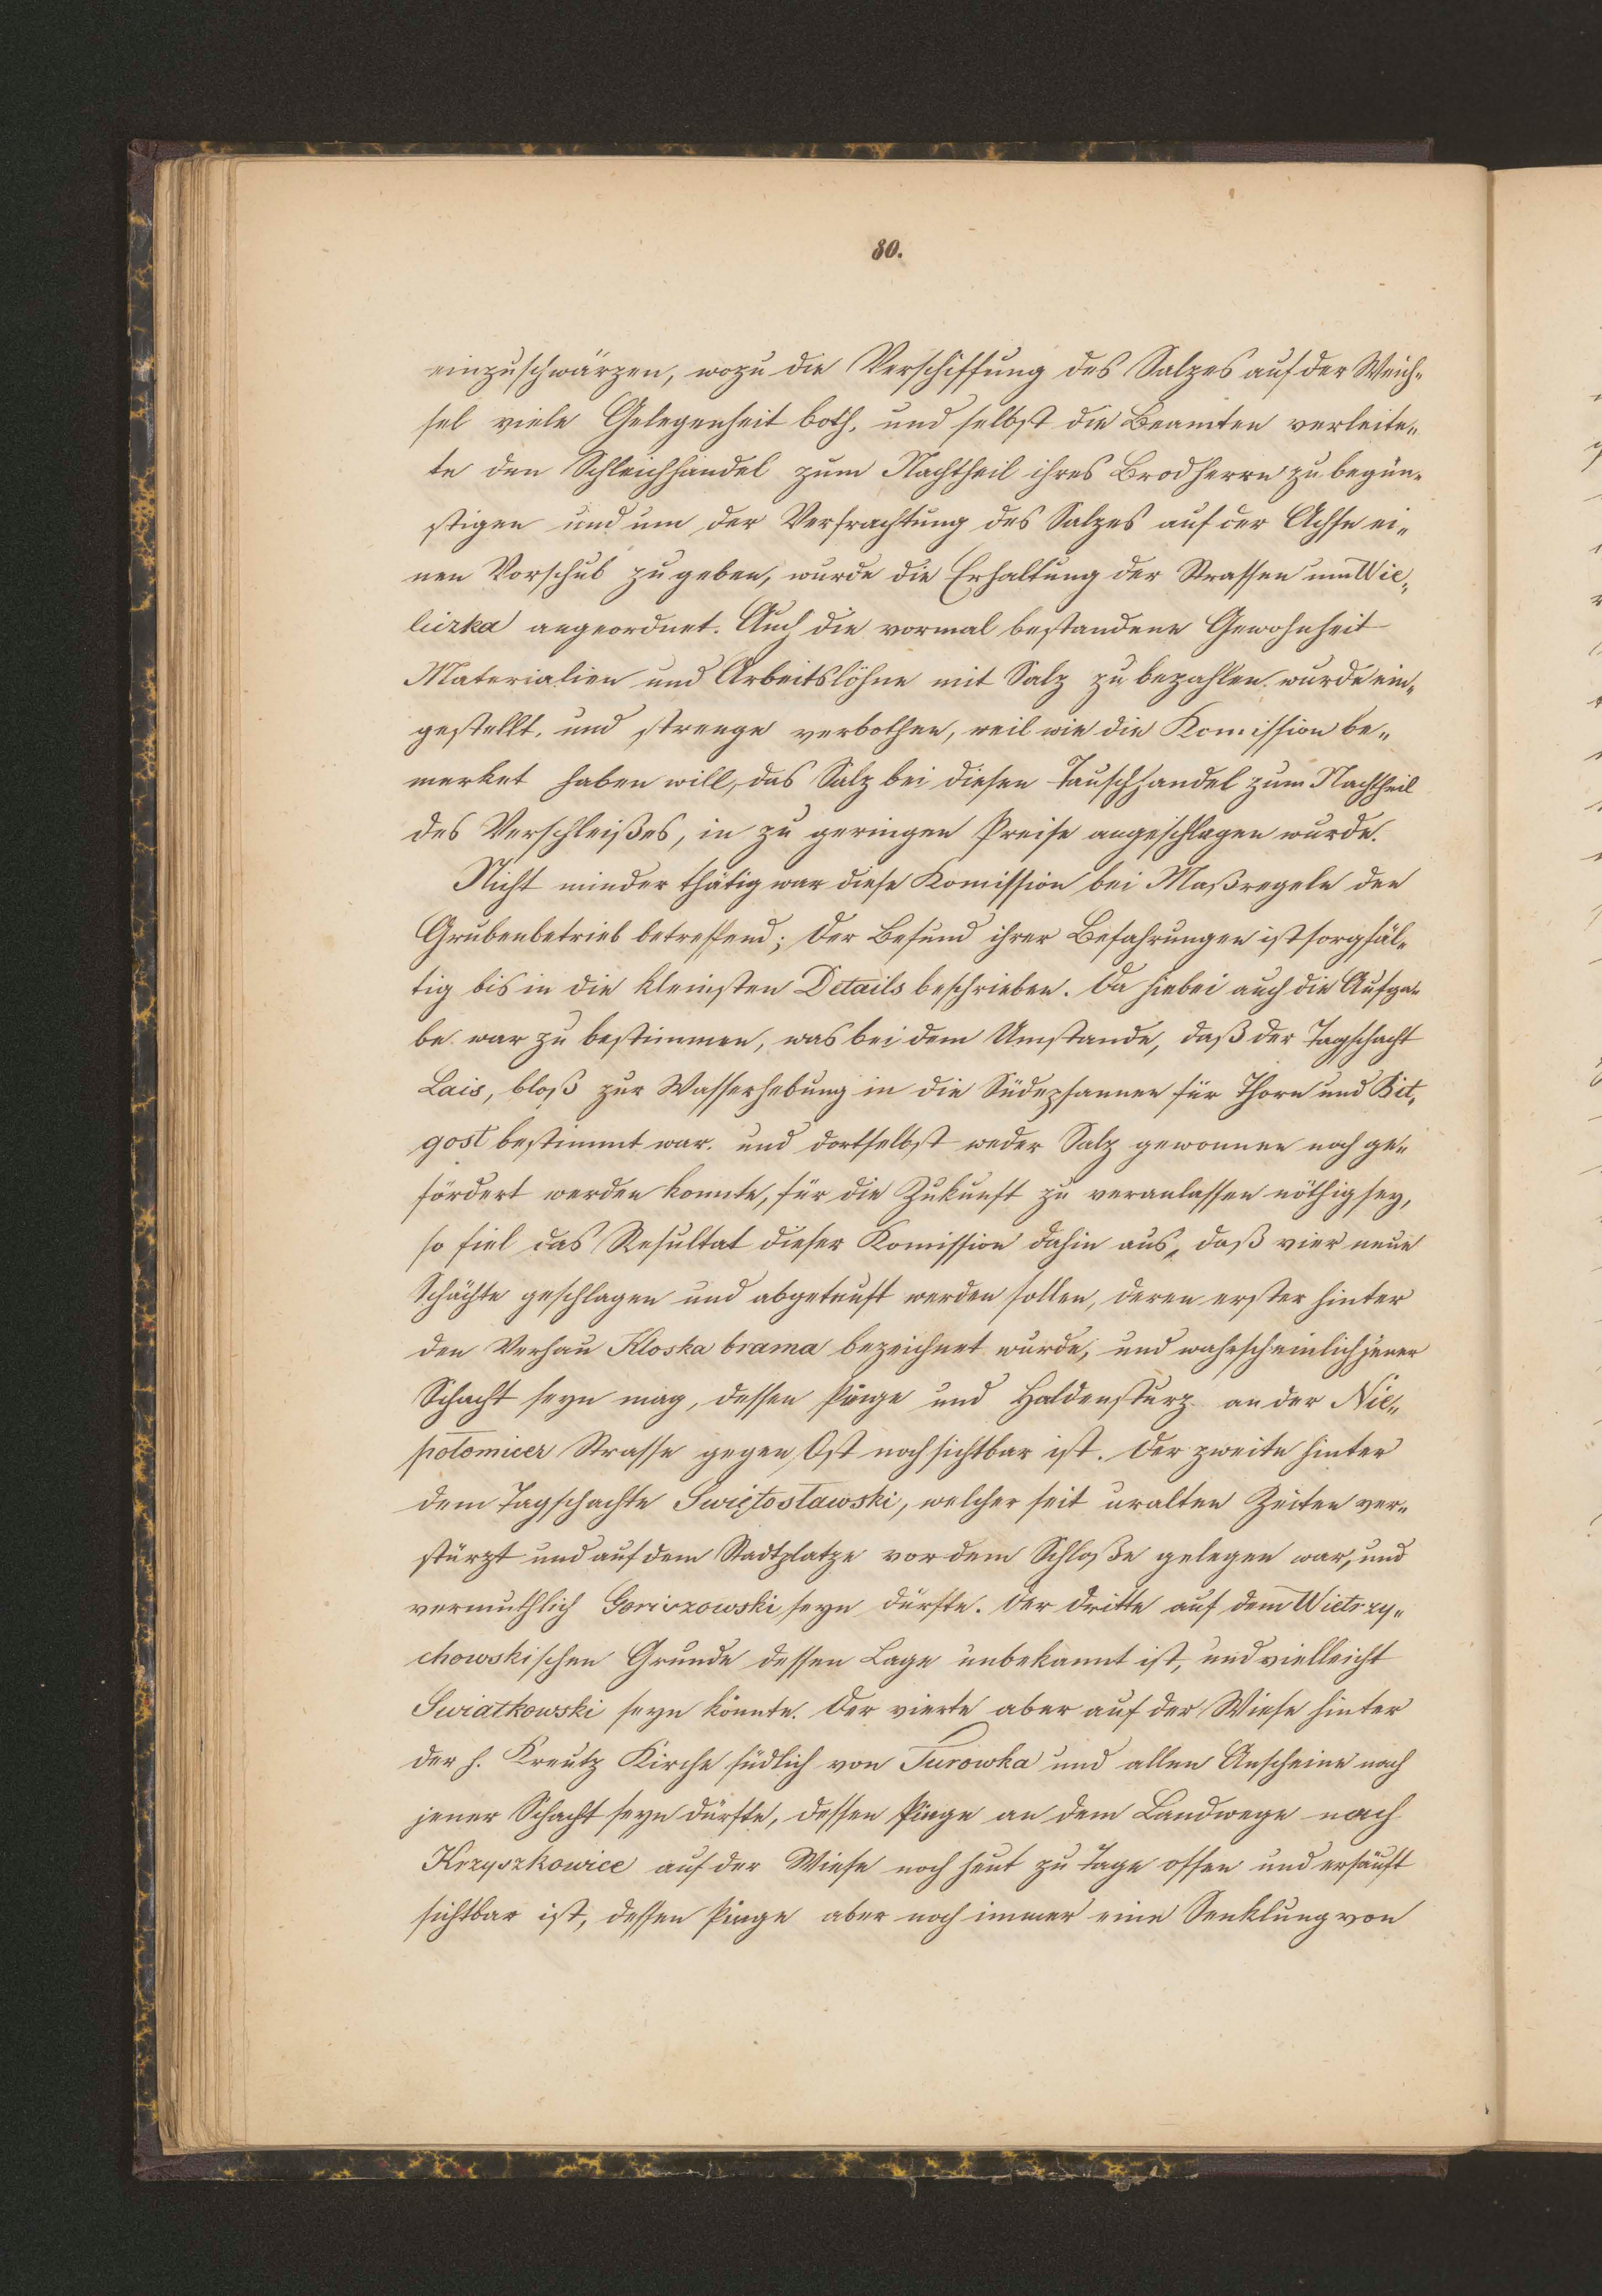 80.
einzuschwärzen, wozu die Verschiffung des Salzes auf der Weich„
sel viele Gelegenheit both, und selbst die Beamten verleite„
te den Schleichhandel zum Nachtheil ihres Brodherrn zu begün„
stigen und um der Verfrachtung des Salzes auf der Achse ei„
nen Vorschub zu geben, wurde die Erhaltung der Strassen um Wie„
liczka angeordnet. Auch die vormal bestandene Gewohnheit
Materialien und Arbeitslöhne mit Salz zu bezahlen wurde ein„
gestellt, und strenge verbothen, weil wie die Komission be„
merket haben will, das Salz bei diesen Tauschhandel zum Nachtheil
des Verschleißes, in zu geringen Preise angeschlagen wurde.
Nicht minder thätig war diese Komission bei Maßregeln den
Grubenbetrieb betreffend; der Befund ihrer Befahrungen ist sorgfäl„
tig bis in die kleinsten Details beschrieben. Da hiebei auch die Aufga„
be war zu bestimmen, was bei dem Umstande, daß der Tagschacht
Lois, bloß zur Wasserhebung in die Südepfannen für Thorn und Bit„
gost bestimmt war, und dortselbst weder Salz gewonnen noch ge„
fördert werden konnte, für die Zukunft zu veranlassen nöthig sey,
so fiel das Resultat dieser Komission dahin aus, daß vier neue
Schächte geschlagen und abgeteuft werden sollen, deren erster hinter
den Verhau Kloska brama bezeichnet wurde, und wahrscheinlich jener
Schacht seyn mag, dessen Pinge und Haldensturz an der Nie„
połomicer Strasse gegen Ost noch sichtbar ist. Der zweite hinter
dem Tagschachte Swiętosławski, welcher seit uralten Zeiten ver„
stürzt und auf dem Stadtplatze vor dem Schloße gelegen war, und
vermuthlich Goriszowski seyn dürfte. Der dritte auf dem Wietrzy„
chowskischen Grunde dessen Lage unbekannt ist, und vielleicht
Swiatkowski seyn könnte. Der vierte aber auf der Wiese hinter
der h. Kreutz Kirche südlich von Turowka und allen Anscheine nach
jener Schacht seyn dürfte, dessen Pinge an dem Landwege nach
Krzyszkowice auf der Wiese noch heut zu Tage offen und ersäuft
sichtbar ist, dessen Pinge aber noch immer eine Senklung von